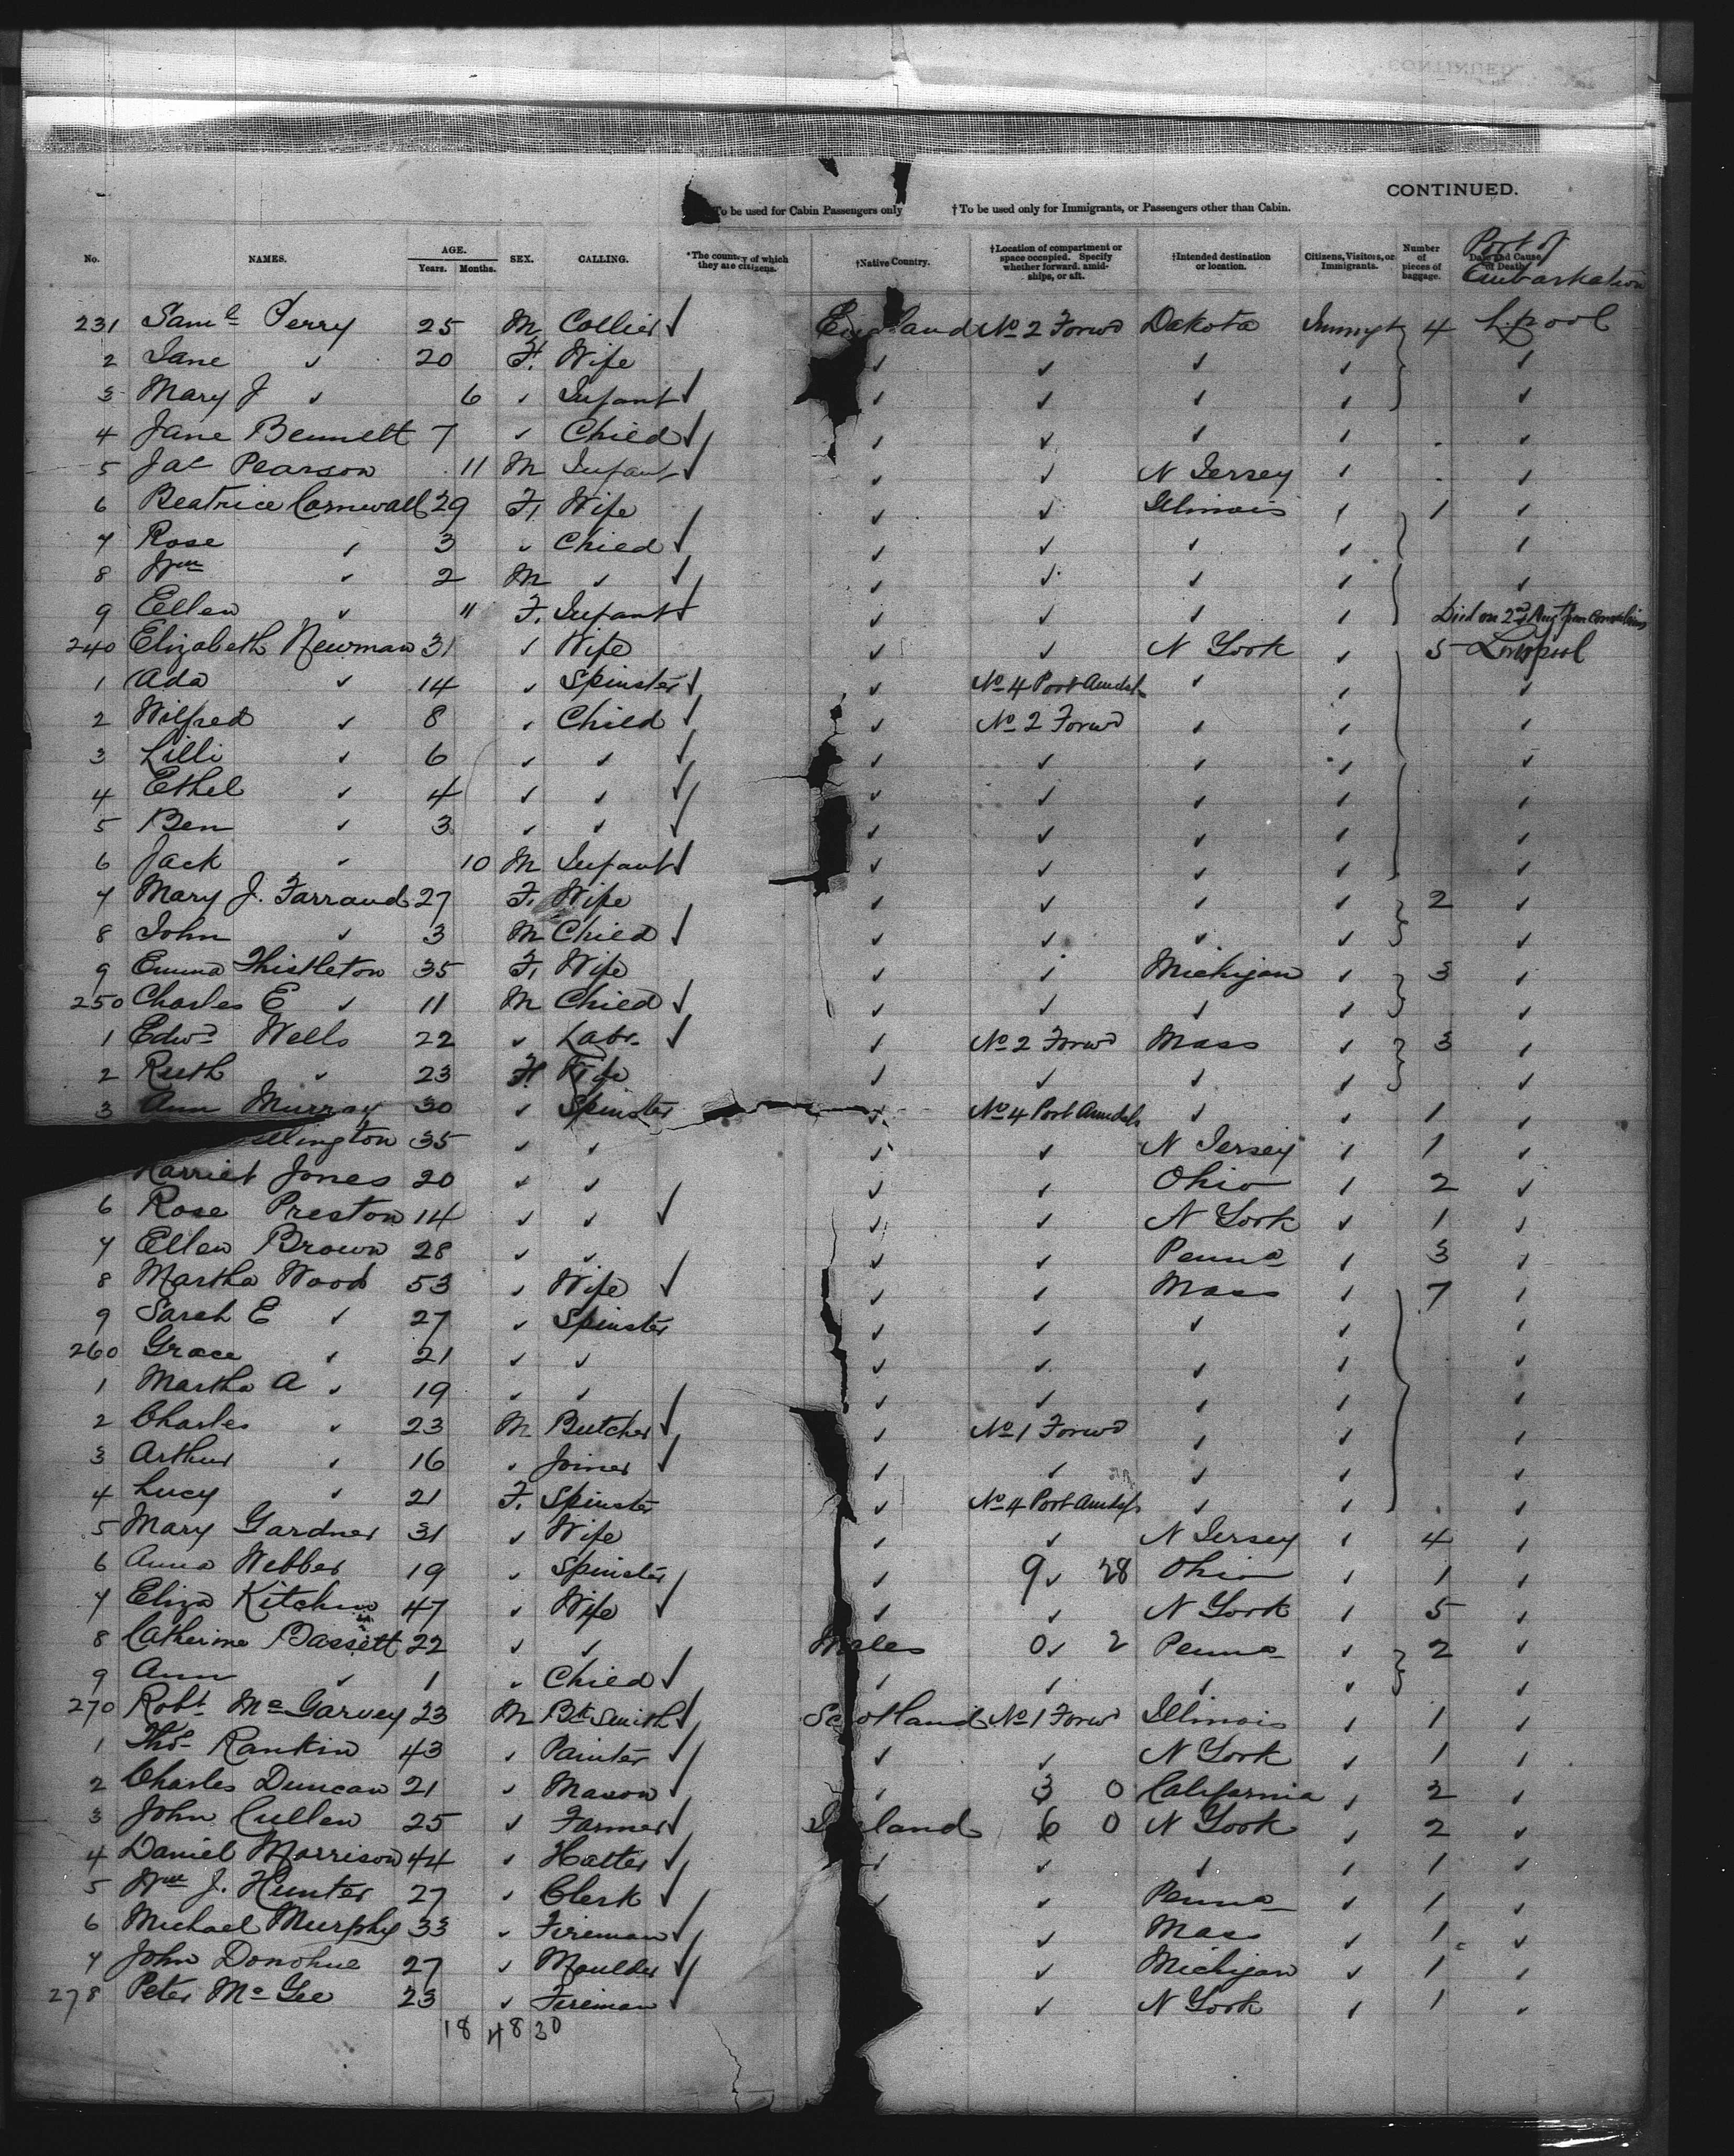 CONTINUED.
To be used for Cabin Passengers only † To be used only for Immigrants, or Passengers other than Cabin.
No. NAMES. AGE. Years. Months. SEX. CALLING. *The country of which they are citizens. †Native Country. †Location of compartment or space occupied. Specify whether forward, amidships, or aft. †Intended destination or location. Citizens, Visitors, or Immigrants. Number of pieces of baggage. Date and Cause of Death Port of Embarkation
231 Saml Perry 25 M Collier ✓ England No 2 Forwd Dakota Immgt 4 L.pool
2 Jane ✓ 20 F. Wife ✓ ✓ ✓ ✓ ✓
3 Mary J ✓ 6 ✓ Infant ✓ ✓ ✓ ✓ ✓ ✓
4 Jane Bennett 7 ✓ Child ✓ ✓ ✓ ✓ ✓ . ✓
5 Jas Pearson 11 M Infant ✓ ✓ ✓ N Jersey ✓ . ✓
6 Beatrice Cornwall 29 F. Wife ✓ ✓ Illinois ✓ 1 ✓
7 Rose ✓ 3 ✓ Child ✓ ✓ ✓ ✓ ✓ ✓
8 Wm ✓ 2 M ✓ ✓ ✓ ✓ ✓ ✓ ✓
9 Ellen ✓ 11 F. Infant ✓ ✓ ✓ ✓ ✓ Died on 2nd Augt from Convulsions
240 Elizabeth Newman 31 ✓ Wife ✓ ✓ N York ✓ 5 Liverpool
1 Ada ✓ 14 ✓ Spinster ✓ ✓ No 4 Port Amdsh ✓ ✓ ✓
2 Wilfred ✓ 8 ✓ Child ✓ ✓ No 2 Forwd ✓ ✓ ✓
3 Lilli ✓ 6 ✓ ✓ ✓ ✓ ✓ ✓ ✓ ✓
4 Ethel ✓ 4 ✓ ✓ ✓ ✓ ✓ ✓ ✓ ✓
5 Ben ✓ 3 ✓ ✓ ✓ ✓ ✓ ✓ ✓ ✓
6 Jack ✓ 10 M Infant ✓ ✓ ✓ ✓ ✓ ✓
7 Mary J. Farrand 27 F. Wife ✓ ✓ ✓ ✓ 2 ✓
8 John ✓ 3 M Child ✓ ✓ ✓ ✓ ✓ ✓
9 Emma Thistleton 35 F. Wife ✓ ✓ Michigan ✓ 3 ✓
250 Charles E ✓ 11 M Child ✓ ✓ ✓ ✓ ✓ ✓
1 Edwd Wells 22 ✓ Labr. ✓ ✓ No 2 Forwd Mass ✓ 3 ✓
2 Ruth ✓ 23 F Wife ✓ ✓ ✓ ✓ ✓
3 Ann Murray 30 ✓ Spinster ✓ No 4 Port Amdsh ✓ ✓ 1 ✓
llington 35 ✓ ✓ ✓ ✓ N Jersey ✓ 1 ✓
Harriet Jones 20 ✓ ✓ ✓ ✓ Ohio ✓ 2 ✓
6 Rose Preston 14 ✓ ✓ ✓ ✓ ✓ N York ✓ 1 ✓
7 Ellen Brown 28 ✓ ✓ ✓ ✓ Penna ✓ 3 ✓
8 Martha Wood 53 ✓ Wife ✓ ✓ ✓ Mass ✓ 7 ✓
9 Sarah E ✓ 27 ✓ Spinster ✓ ✓ ✓ ✓ ✓
260 Grace ✓ 21 ✓ ✓ ✓ ✓ ✓ ✓ ✓
1 Martha A ✓ 19 ✓ ✓ ✓ ✓ ✓ ✓ ✓
2 Charles ✓ 23 M Butcher ✓ ✓ No 1 Forwd ✓ ✓ ✓
3 Arthur ✓ 16 ✓ Joiner ✓ ✓ ✓ ✓ ✓ ✓
4 Lucy ✓ 21 F. Spinster ✓ No 4 Port Amdsh ✓ ✓ . ✓
5 Mary Gardner 31 ✓ Wife ✓ ✓ N Jersey ✓ 4 ✓
6 Anna Webber 19 ✓ Spinster ✓ 9 ✓ 28 Ohio ✓ 1 ✓
7 Eliza Kitchen 47 ✓ Wife ✓ ✓ ✓ N York ✓ 5 ✓
8 Catherine Bassett 22 ✓ ✓ Wales 0 ✓ 2 Penna ✓ 2 ✓
9 Ann ✓ 1 ✓ Child ✓ ✓ ✓ ✓ ✓ ✓
270 Robt McGarvey 23 M Bk Smith ✓ Scotland No 1 Forwd Illinois ✓ 1 ✓
1 Thos Rankin 43 ✓ Painter ✓ ✓ ✓ N York ✓ 1 ✓
2 Charles Duncan 21 ✓ Mason ✓ ✓ 3 0 California ✓ 2 ✓
3 John Cullen 25 ✓ Farmer ✓ Ireland 6 0 N York ✓ 2 ✓
4 Daniel Morrison 44 ✓ Hatter ✓ ✓ ✓ ✓ ✓ 1 ✓
5 Wm J. Hunter 27 ✓ Clerk ✓ ✓ ✓ Penna ✓ 1 ✓
6 Michael Murphy 33 ✓ Fireman ✓ ✓ Mass ✓ 1 ✓
7 John Donohue 27 ✓ Moulder ✓ ✓ Michigan ✓ 1 ✓
278 Peter McGee 23 ✓ Fireman ✓ ✓ N York ✓ 1 ✓
18 48 30